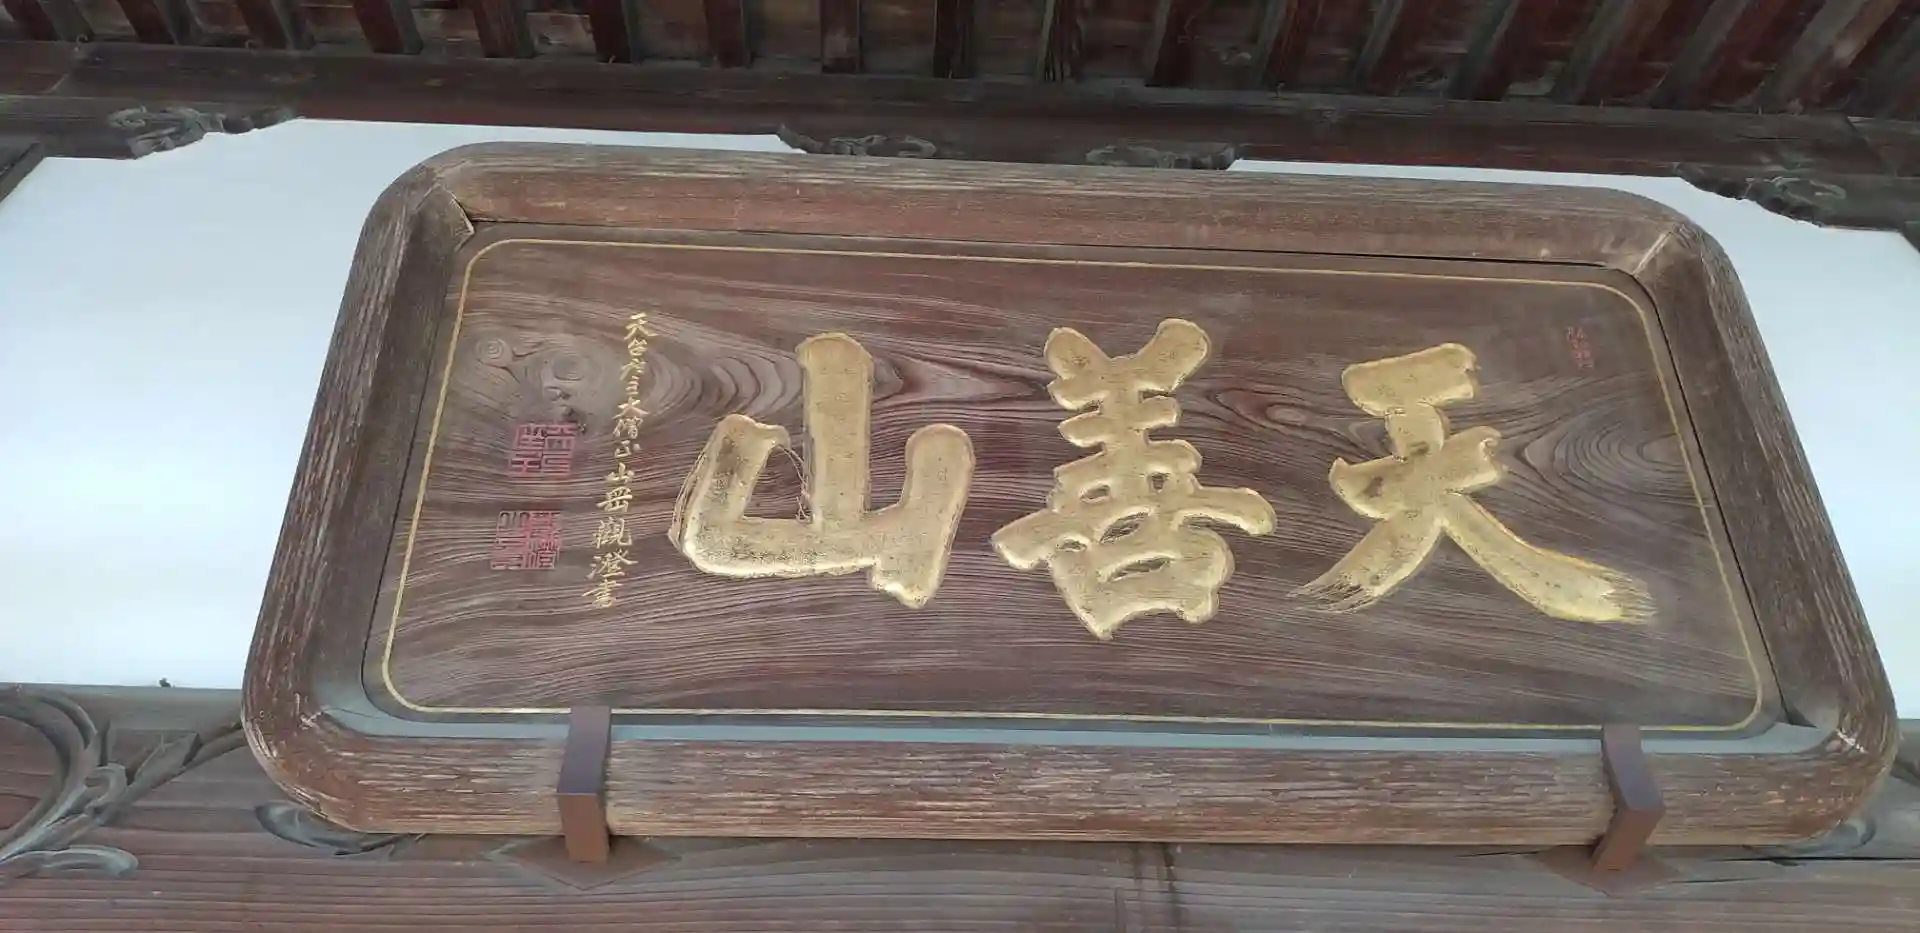 天善山
天台座主大僧正山田惠諦書